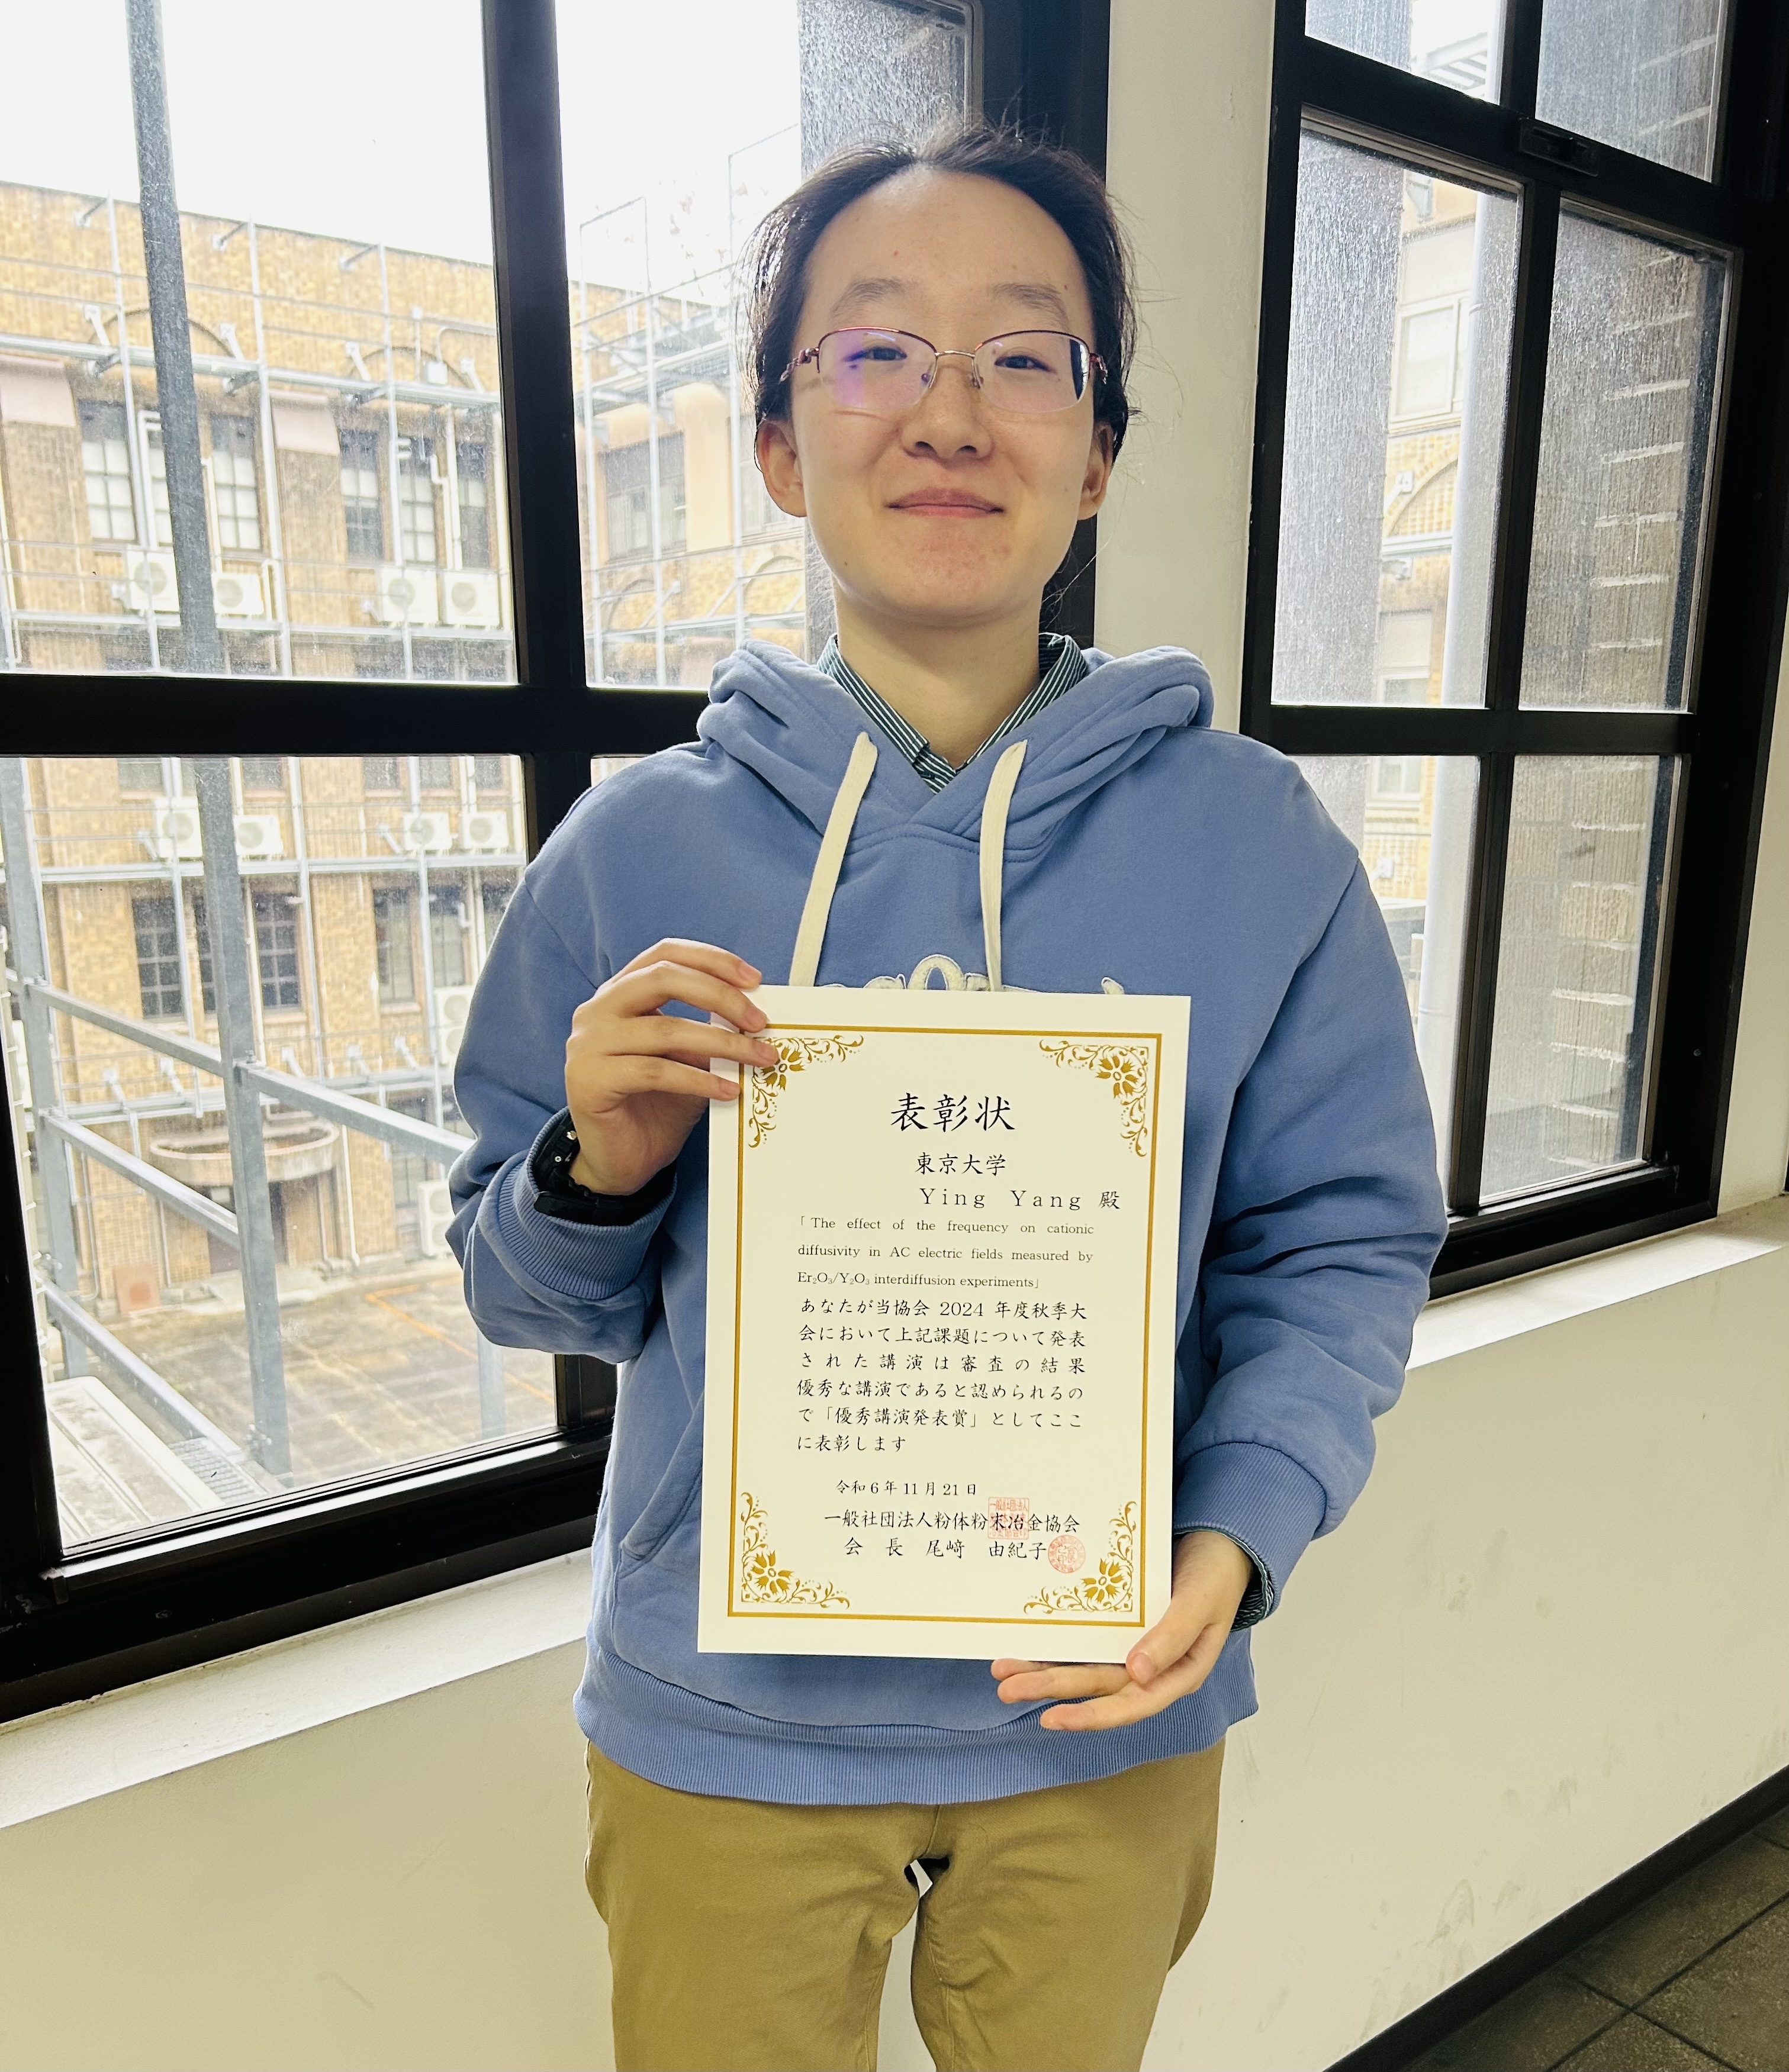 表彰状
東京大学
Ying Yang 殿
「The effect of the frequency on cationic
diffusivity in AC electric fields measured by
Er₂O₃/Y₂O₃ interdiffusion experiments」
あなたが当協会 2024 年度秋季大
会において上記課題について発表
された講演は審査の結果
優秀な講演であると認められるの
で「優秀講演発表賞」としてここ
に表彰します
令和6年11月21日
一般社団法人粉体粉末冶金協会
会長 尾﨑 由紀子